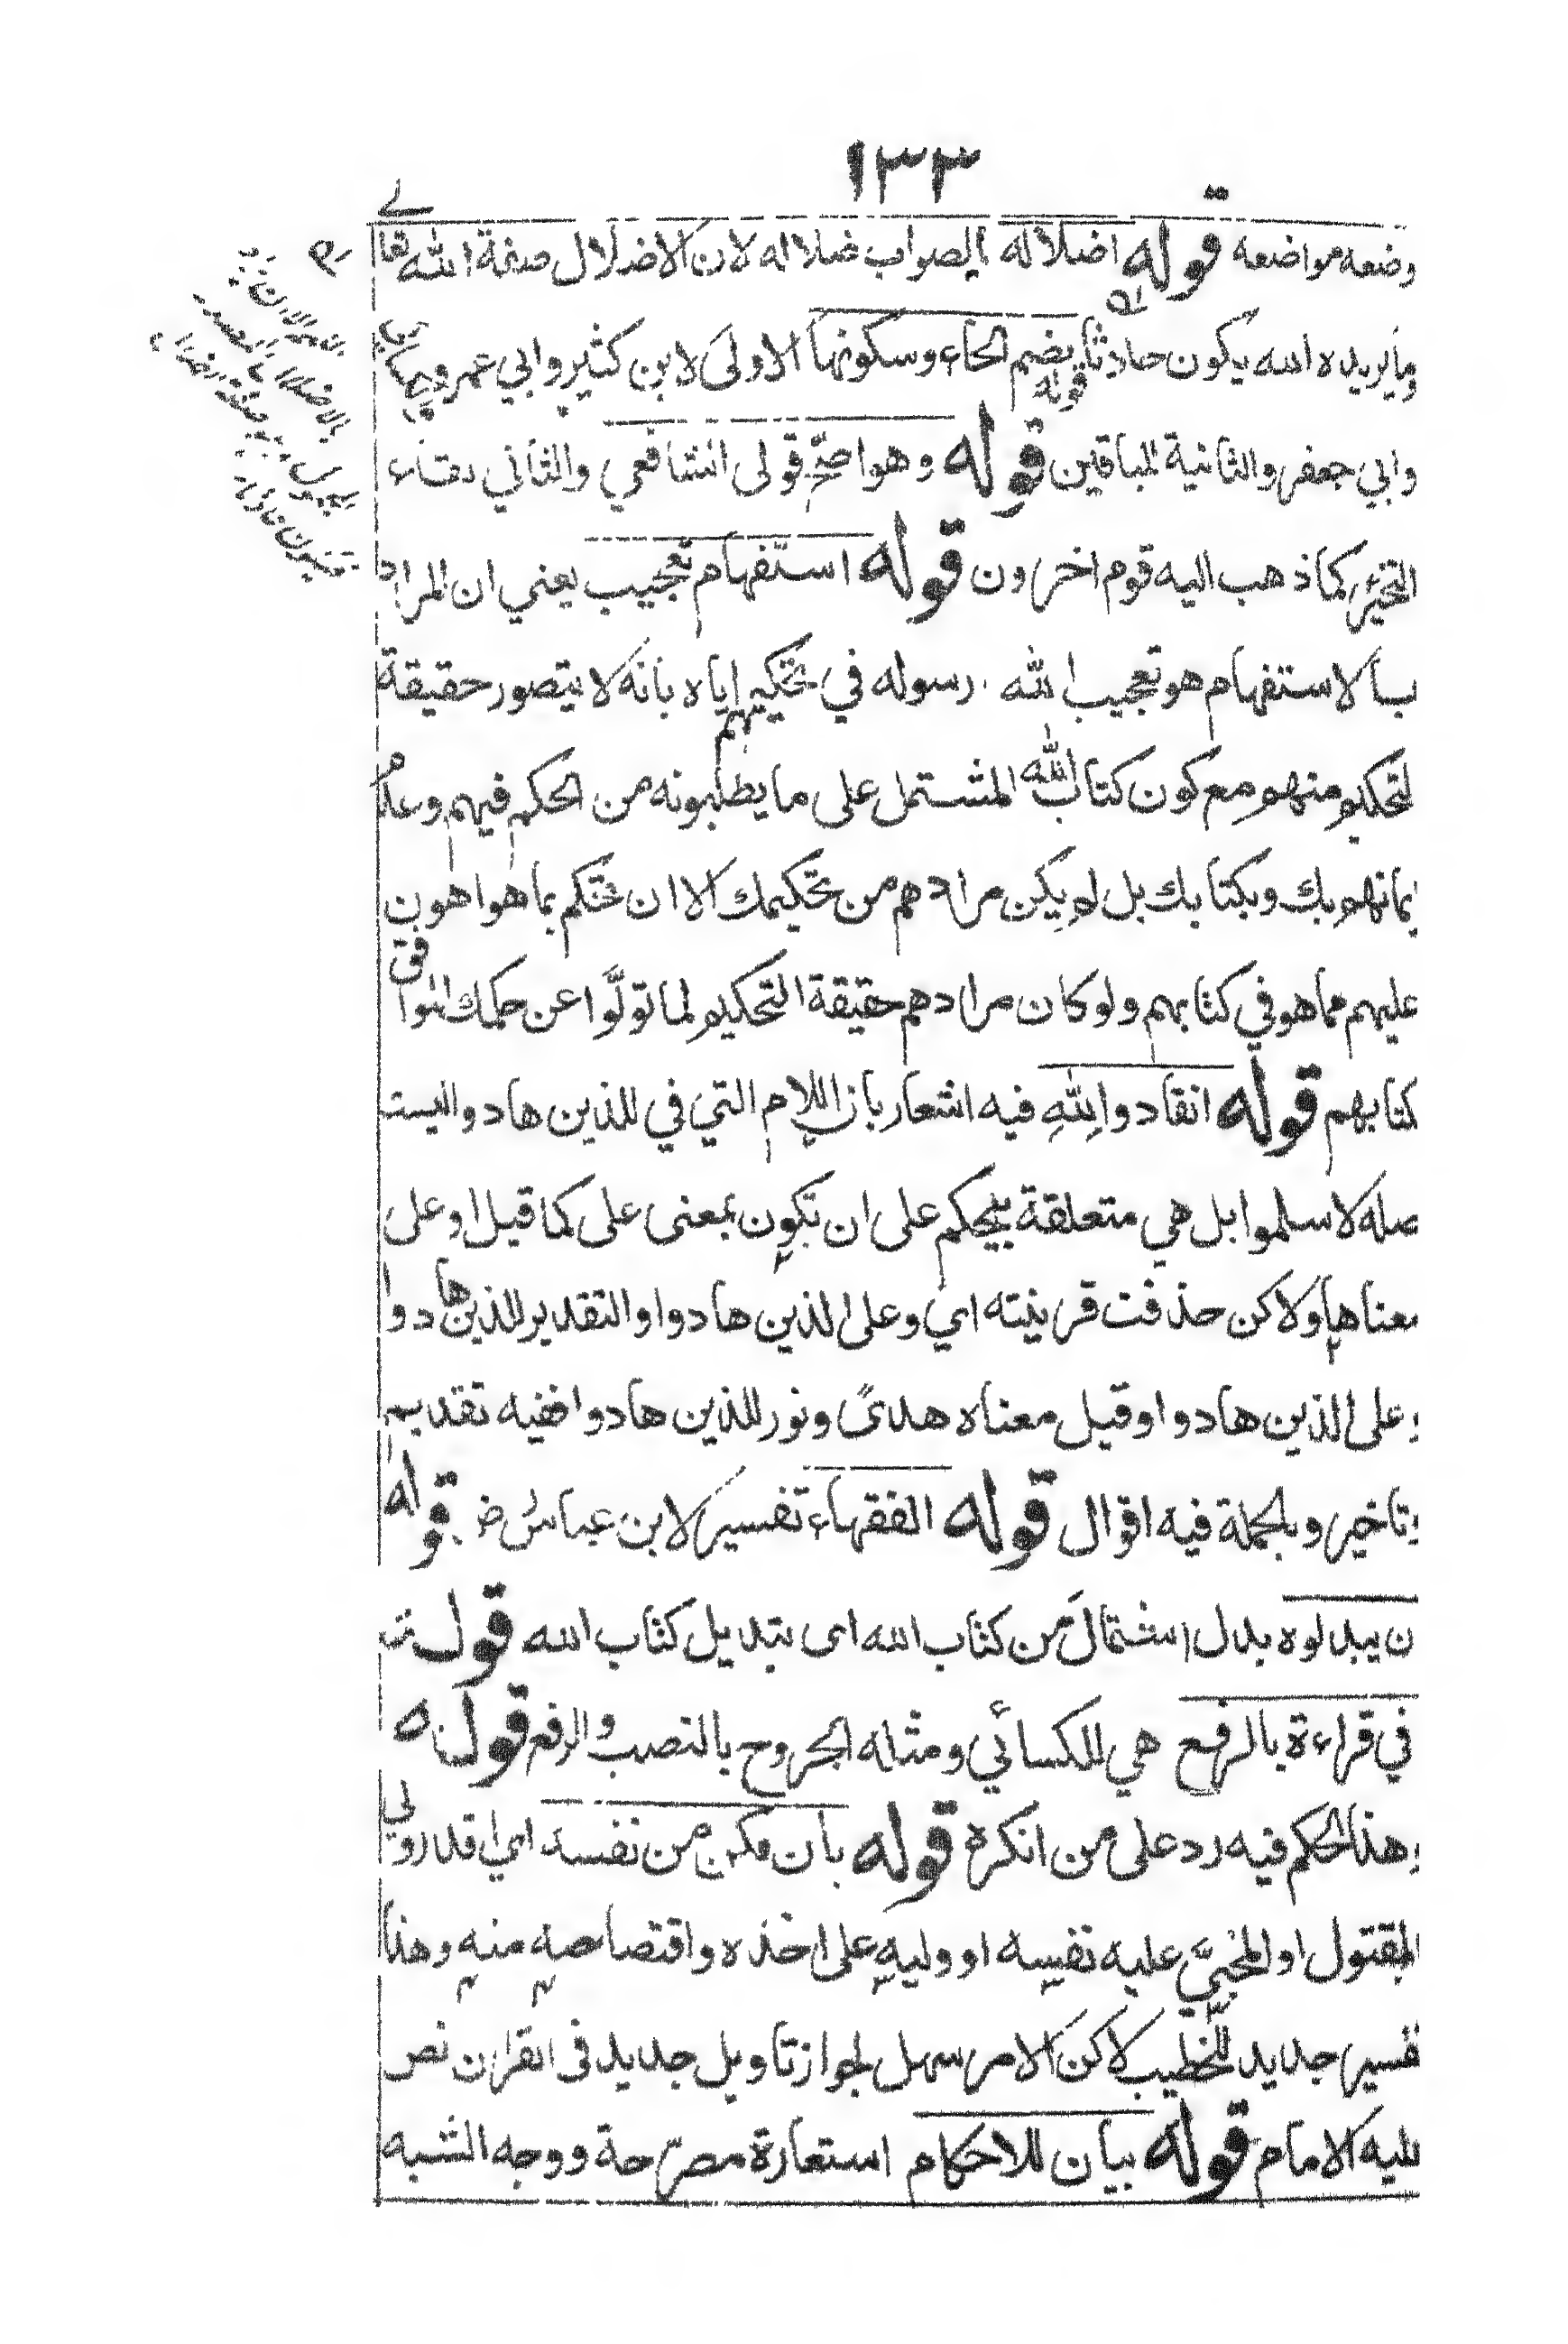 ١٣٣
وضعه مواضعه قوله اضلاله الصواب ضلاله لان الاضلال صفة الله تعالى
وما يريده الله يكون حادثا قوله بضم الحاء وسكونها الاولى لابن كثير وابي عمرو
وابي جعفر والثانية للباقين قوله وهو اصح قولى الشافعي والثاني بقاء
التخيير كما ذهب اليه قوم اخرون قوله استفهام تعجيب يعني ان المراد
بالاستفهام هو تعجيب الله رسوله في تحكيمهم اياه بانه لا يتصور حقيقة
لتحكيم منهم مع كون كتاب الله المشتمل على ما يطلبونه من الحكم فيهم وعدم
ايمانهم بك وبكتابك بل لم يكن مرادهم من تحكيمك الا ان تحكم بما هو اهون
عليهم مما هو في كتابهم ولو كان مرادهم حقيقة التحكيم لما تولوا عن حكمك الموافق
كتابهم قوله انقادوا لله فيه اشعار بان اللام التي في للذين هادوا ليست
صله لاسلموا بل هي متعلقة بيحكم على ان تكون بمعنى على كما قيل او على
معناها ولاكن حذفت قرينته اي وعلى الذين هادوا والتقدير للذين هادوا
وعلى الذين هادوا وقيل معناه هدىً ونور للذين هادوا ففيه تقديم
وتاخير وبالجملة فيه اقوال قوله الفقهاء تفسير لابن عباس رض قوله
ن يبدلوه بدل اشتمال من كتاب الله اى بتبديل كتاب الله قوله
في قراءة بالرفع هي للكسائي ومثله الجروح بالنصب والرفع قوله
وهذا الحكم فيه رد على من انكره قوله بان مكن من نفسه اي اقدر ولي
المقتول او المجنيّ عليه نفسه او وليه على اخذه واقتصاصه منه وهذا
تفسير جديد للخطيب لاكن الامر سهل لجواز تاويل جديد فى القران نص
عليه الامام قوله بيان للاحكام استعارة مصرّحة ووجه الشبه